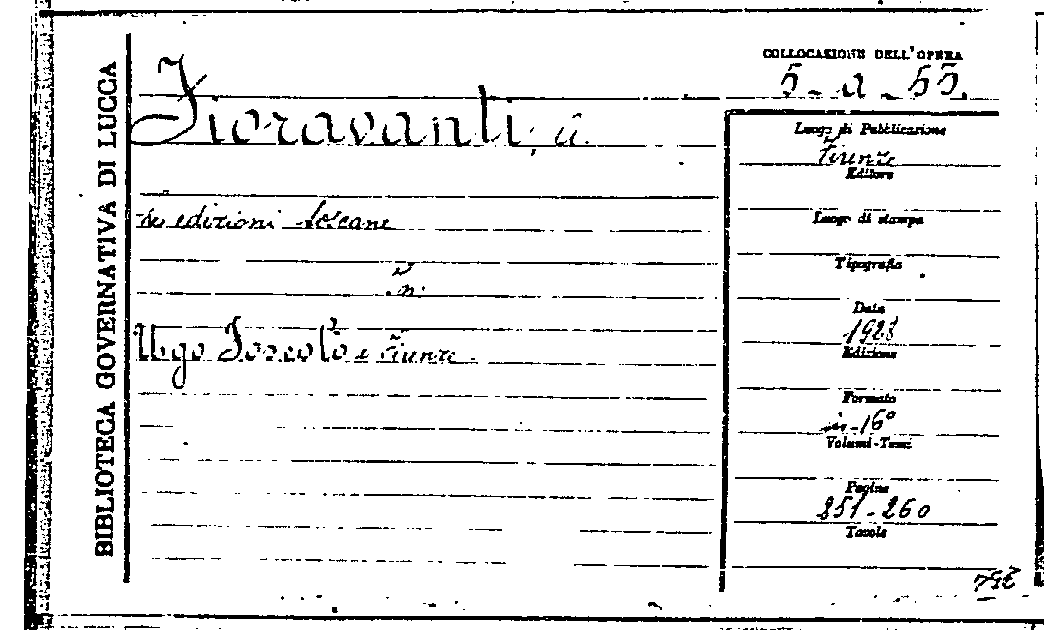 BIBLIOTECA GOVERNATIVA DI LUCCA
COLLOCAZIONE DELL'OPERA
5-a-53.
Fioravanti, a.
Le edizioni toscane
in:
Ugo Foscolo e Firenze.
Luogo di Pubblicazione
Firenze
Editore
Luogo di stampa
Tipografia
Data
1928
Edizione
Formato
in-16°
Volumi-Tomi
Pagine
251-260
Tavole